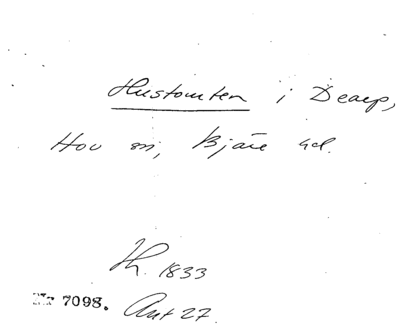 Hustomten i Dearp,
Hov sn, Bjäre hd.
Th. 1833
Nr 7098. Ant 27